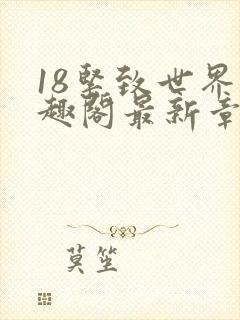 18坚致世界
趣阁最新章
莫笙